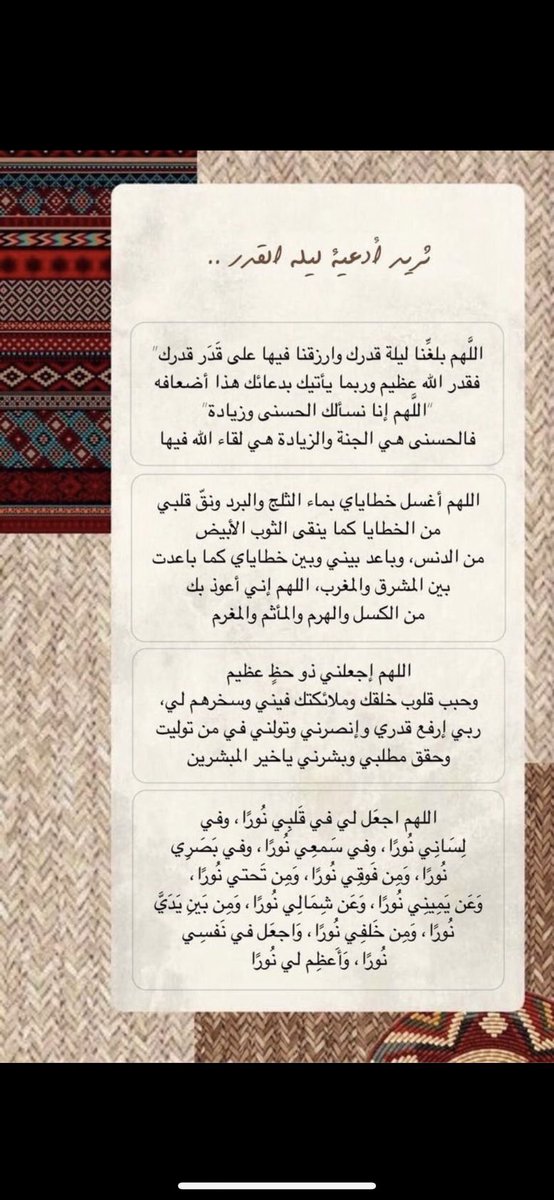 تريد أدعية ليله القدر ..
اللَّهم بلغِّنا ليلة قدرك وارزقنا فيها على قَدَر قدرك"
فقدر الله عظيم وربما يأتيك بدعائك هذا أضعافه
"اللَّهم إنا نسألك الحسنى وزيادة"
فالحسنى هي الجنة والزيادة هي لقاء الله فيها
اللهم أغسل خطاياي بماء الثلج والبرد ونقّ قلبي
من الخطايا كما ينقى الثوب الأبيض
من الدنس، وباعد بيني وبين خطاياي كما باعدت
بين المشرق والمغرب، اللهم إني أعوذ بك
من الكسل والهرم والمأثم والمغرم
اللهم إجعلني ذو حظٍ عظيم
وحبب قلوب خلقك وملائكتك فيني وسخرهم لي،
ربي إرفع قدري وإنصرني وتولني في من توليت
وحقق مطلبي وبشرني ياخير المبشرين
اللهم اجعَل لي في قَلبِي نُورًا ، وفي
لِسَانِي نُورًا ، وفي سَمعِي نُورًا ، وفي بَصَرِي
نُورًا ، وَمِن فَوقِي نُورًا ، وَمِن تَحتي نُورًا ،
وَعَن يَمِينِي نُورًا ، وَعَن شِمَالِي نُورًا ، وَمِن بَينِ يَدَيَّ
نُورًا ، وَمِن خَلفِي نُورًا ، وَاجعَل في نَفسِي
نُورًا ، وَأَعظِم لي نُورًا